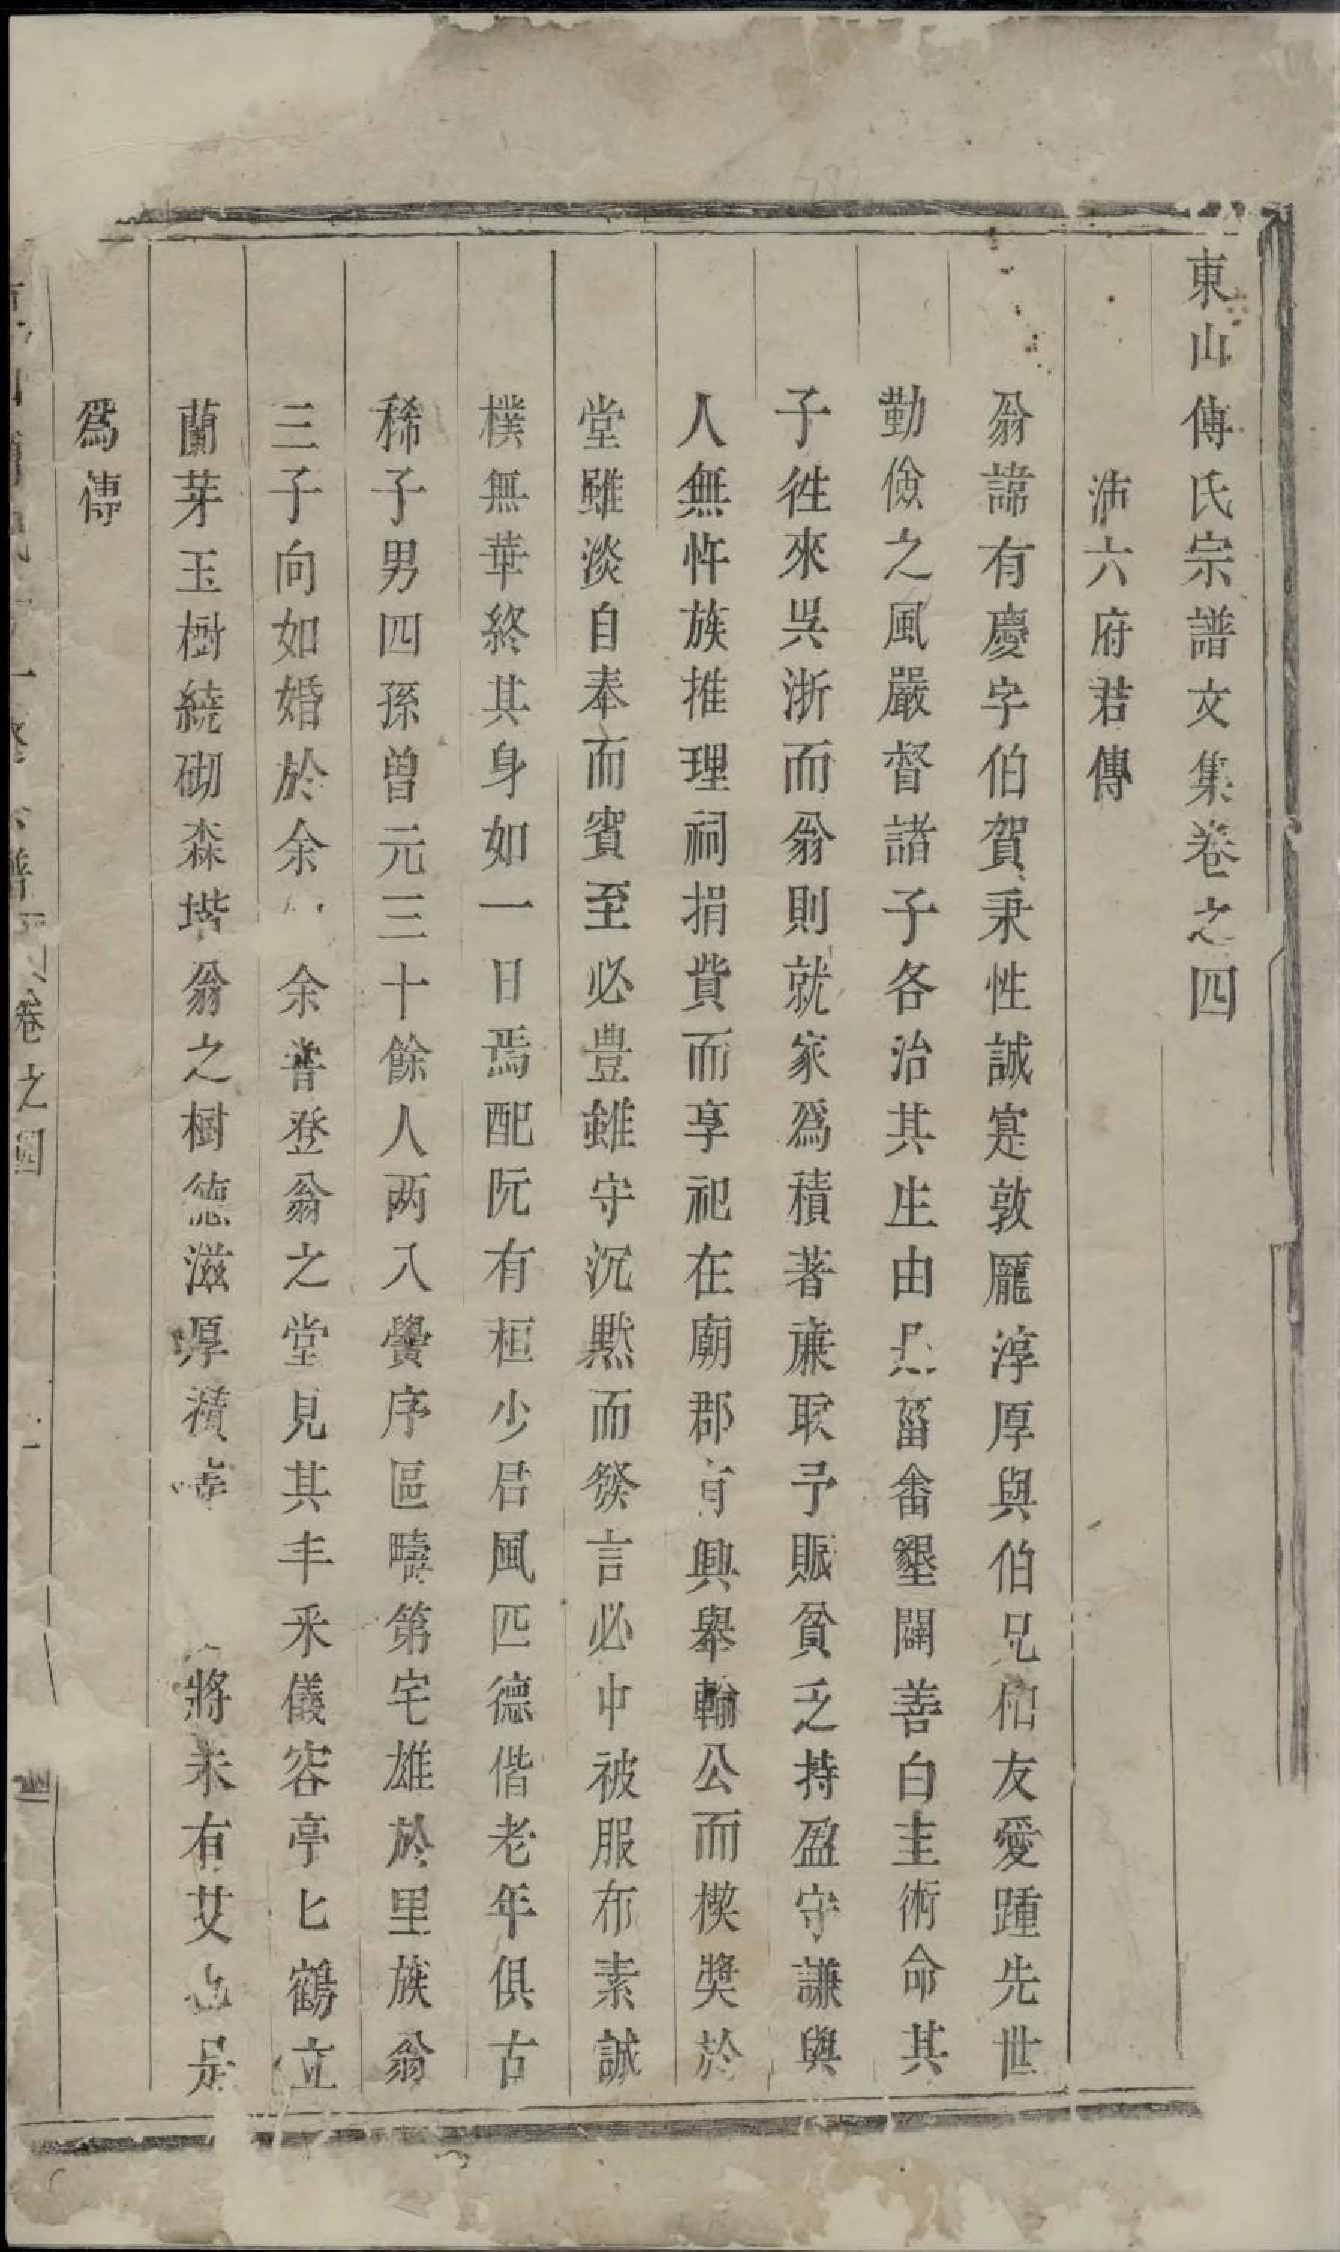 東山傅氏宗譜文集卷之四
沛六府君傳
翁諱有慶字伯賀秉性誠寔敦龎淳厚與伯兄和友愛踵先世
勤儉之風嚴督諸子各治其生由是菑畬墾闢善白圭術命其
子徃來吳浙而翁則就家爲積著亷取予賑貧乏持盈守謙與
人無忤族推理祠捐貲而享祀在廟郡有興舉輸公而楔奬於
堂雖淡自奉而賓至必豊雖守沉黙而發言必中被服布素誠
樸無華終其身如一日焉配阮有桓少君風匹德偕老年俱古
稀子男四孫曽元三十餘人两入黌序區疇第宅雄於里族翁
三子向如婚於余 余甞登翁之堂見其丰釆儀容亭匕鶴立
蘭芽玉樹繞砌森堦翁之樹德滋厚積 將未有艾也是
爲傳
卷之四